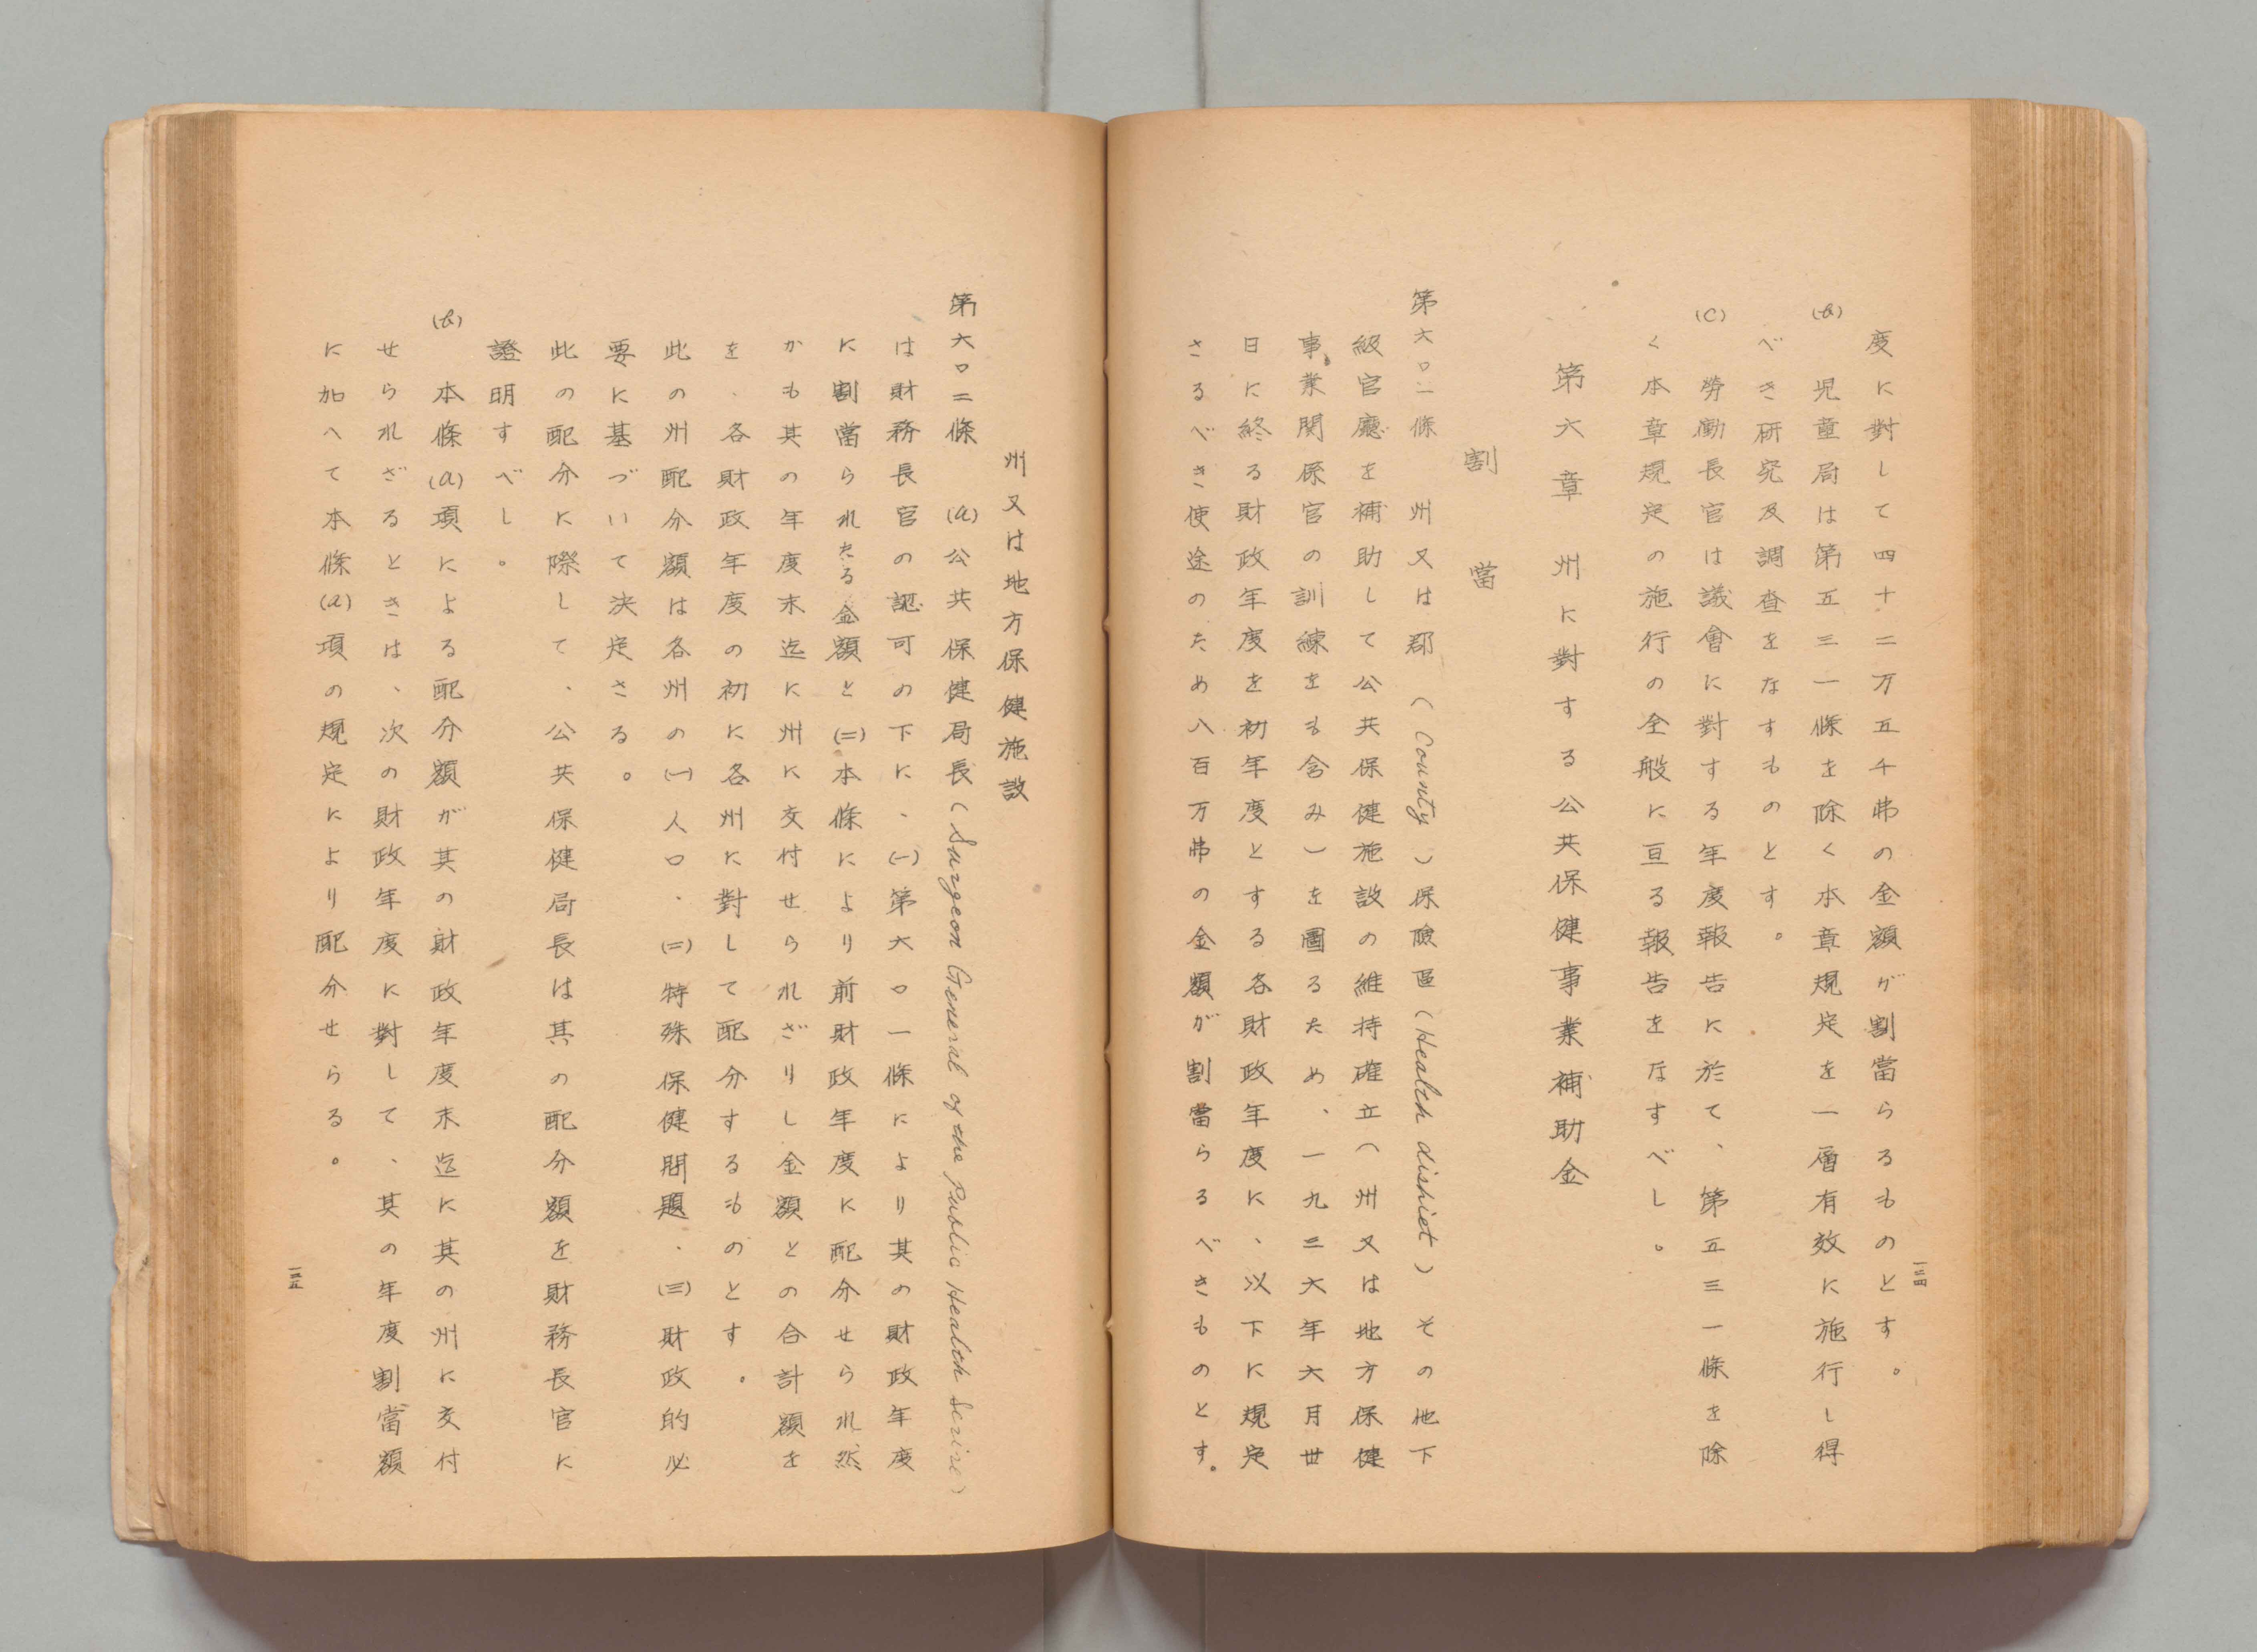 度に對して四十二万五千弗の金額が割當らるものとす。
(b) 児童局は第五三一條を除く本章規定を一層有效に施行し得
べき研究及調査をなすものとす。
(C) 勞働長官は議會に對する年度報告に於て、第五三一條を除
く本章規定の施行の全般に亘る報告をなすべし。
第六章 州に對する公共保健事業補助金
割當
第六〇一條 州又は郡(County)保險區(Health dishiet)その他下
級官廳を補助して公共保健施設の維持確立(州又は地方保健
事業関係官の訓練をも含み)を圖るため、一九三六年六月卅
日に終る財政年度を初年度とする各財政年度に、以下に規定
さるべき使途のため八百万弗の金額が割當らるべきものとす。
一三四
州又は地方保健施設
第六〇二條 (a)公共保健局長(Surgeon General of the Public Health Serire)
は財務長官の認可の下に、(一)第六〇一條により其の財政年度
に割當られたる金額と(二)本條により前財政年度に配分せられ然
かも其の年度末迄に州に交付せられざりし金額との合計額を
を、各財政年度の初に各州に對して配分するものとす。
此の州配分額は各州の(一)人口、(二)特殊保健問題、(三)財政的必
要に基づいて決定さる。
此の配分に際して、公共保健局長は其の配分額を財務長官に
證明すべし。
(b) 本條(a)項による配分額が其の財政年度末迄に其の州に交付
せられざるときは、次の財政年度に對して、其の年度割當額
に加へて本條(a)項の規定により配分せらる。
一三五